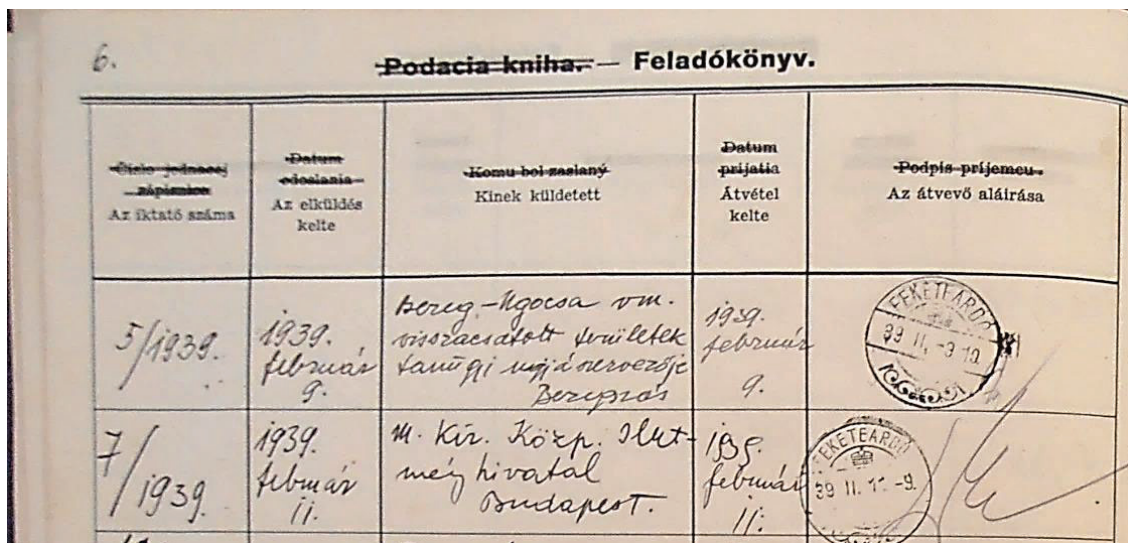 6.
Podacia kniha. — Feladókönyv.
Číslo jednacej
zápisnice
Az iktató száma
Datum
odoslania
Az elküldés
kelte
Komu bol zaslaný
Kinek küldetett
Datum
prijatia
Átvétel
kelte
Podpis príjemcu.
Az átvevő aláirása
5/1939.
1939.
február
9.
Bereg-Ugocsa vm.
visszacsatolt területek
tanügyi ujjászervezője
Beregszász
1939.
február
9.
FEKETEARDÓ
39 II. -9 10
7/1939.
1939.
február
11.
M. Kir. Közp. Illet-
mény hivatal
Budapest.
1939.
február
11.
FEKETEARDÓ
39 II. 11 -9.